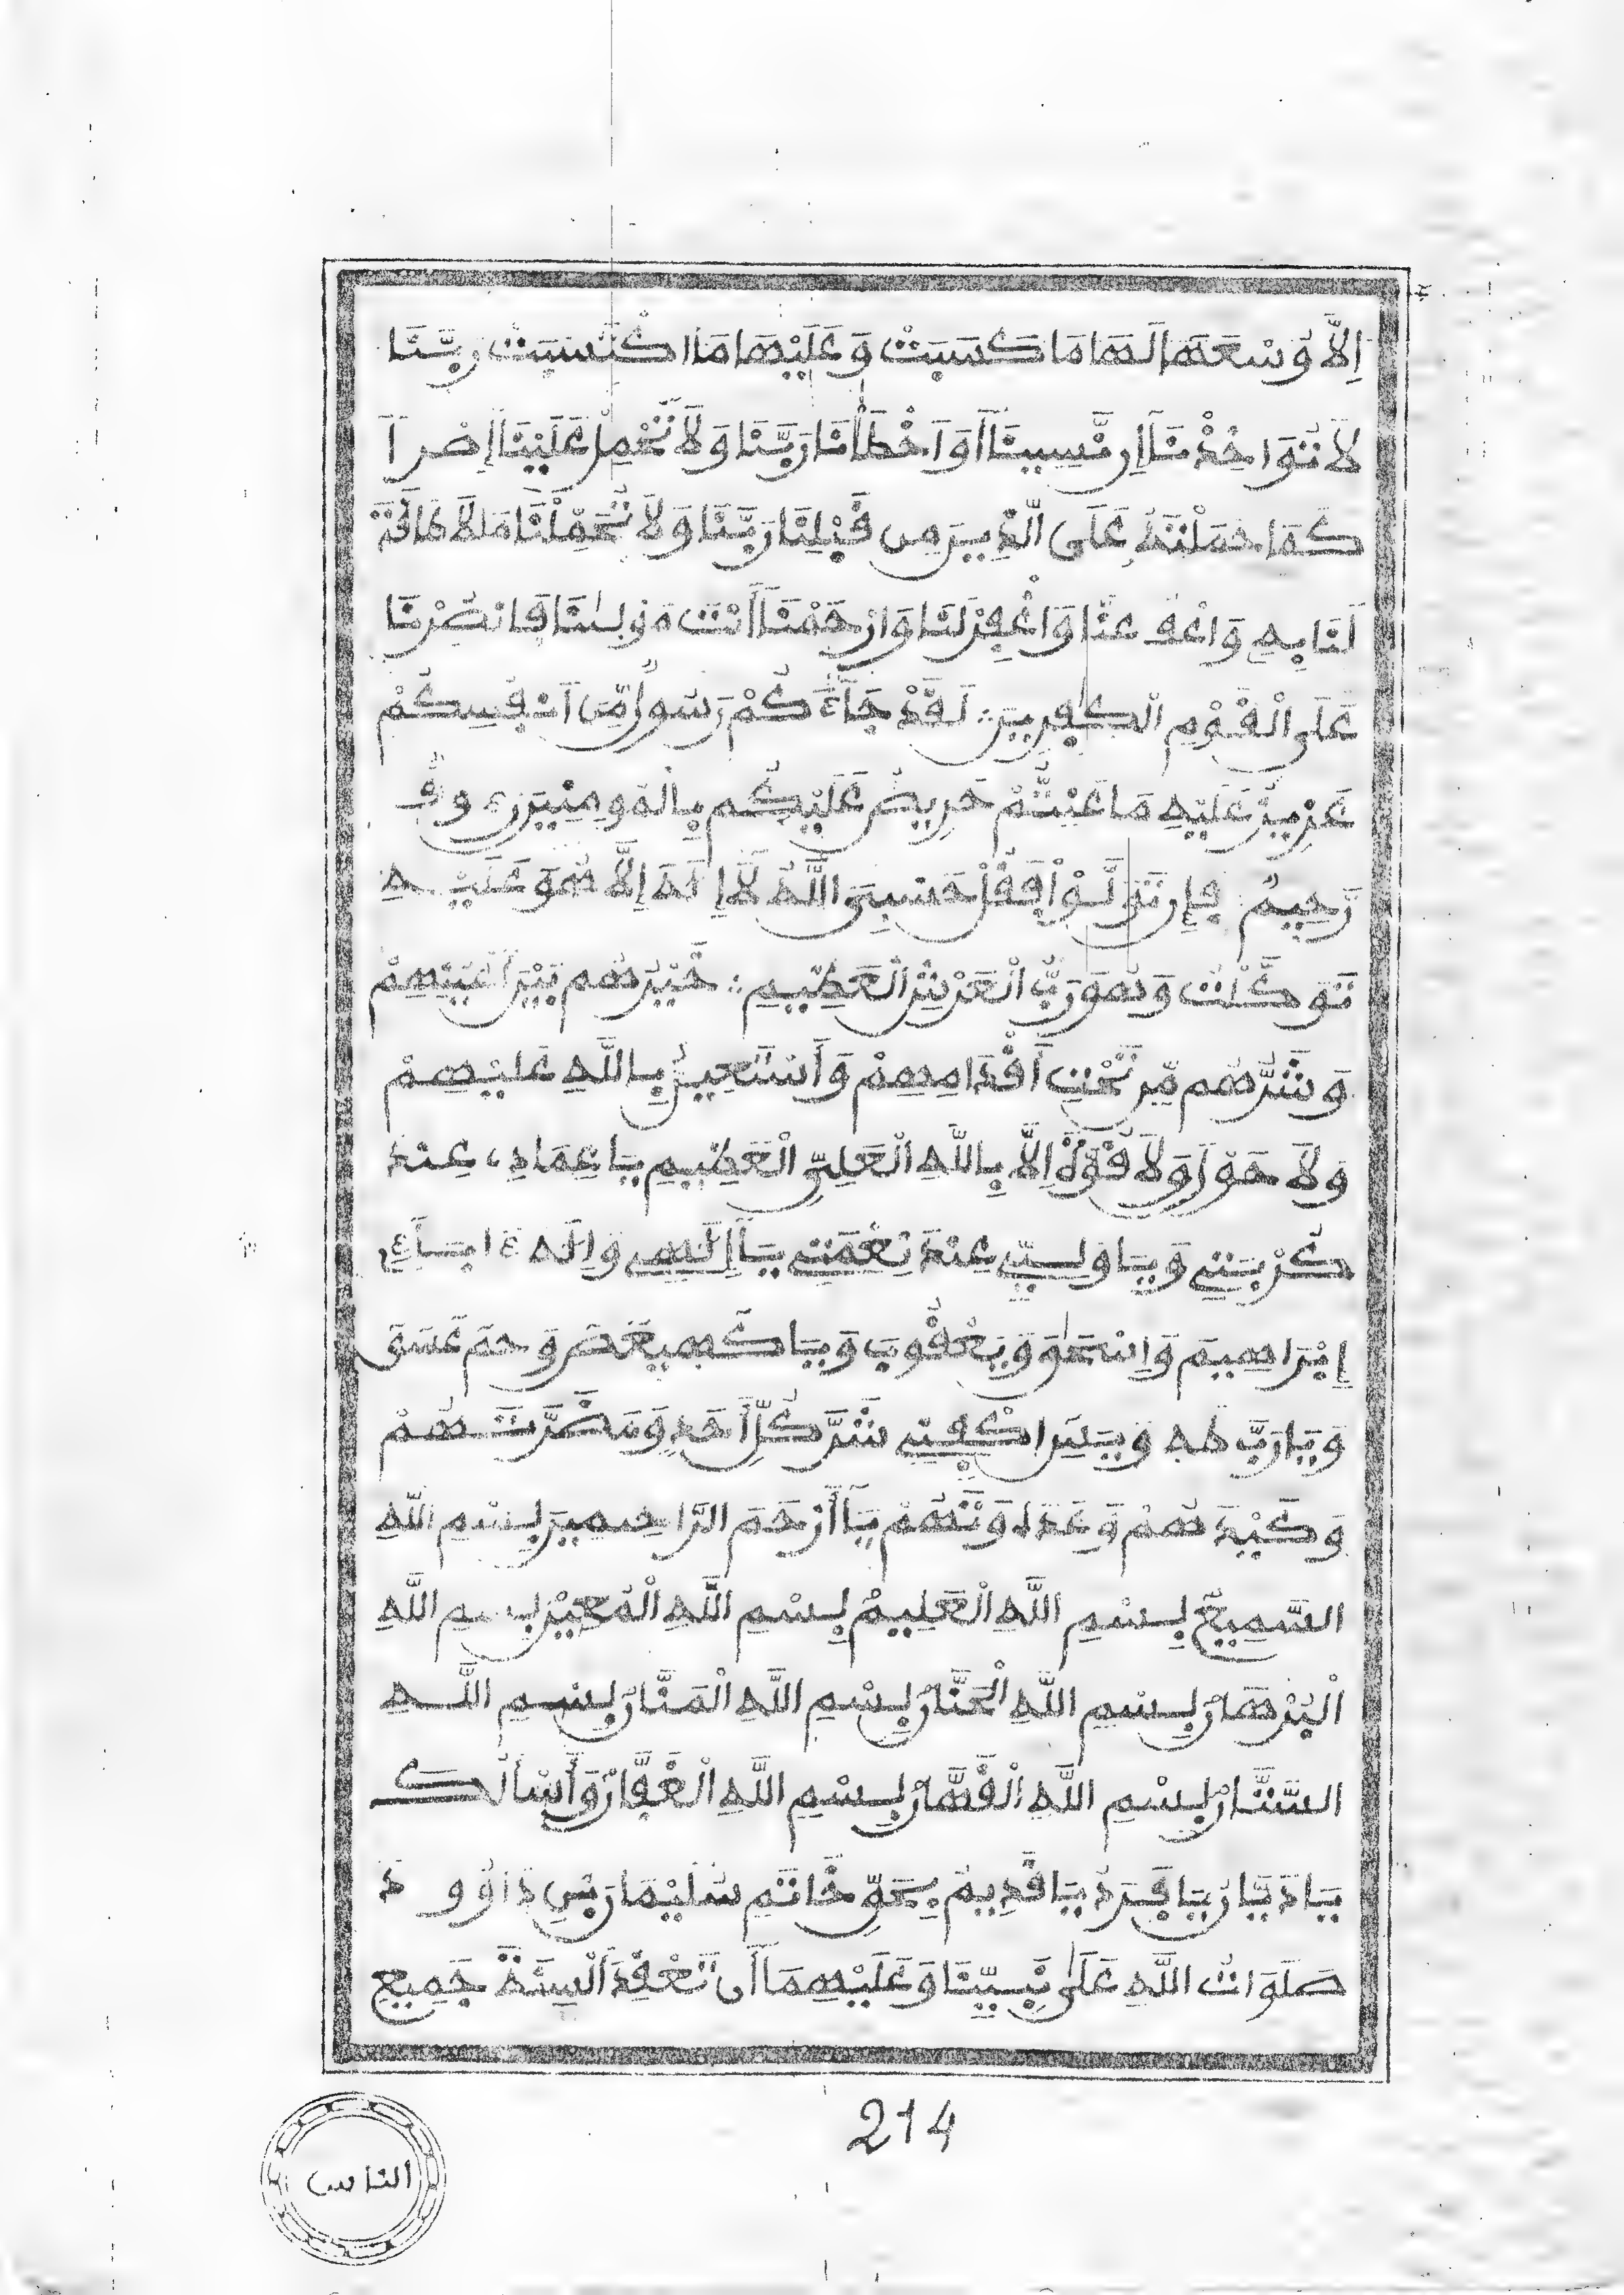 إِلَّا وُسْعَهَا لَهَا مَا كَسَبَتْ وَعَلَيْهَا مَا اكْتَسَبَتْ رَبَّنَا
لَا تُوَاخِذْنَا إِن نَّسِينَا أَوْ أَخْطَأْنَا رَبَّنَا وَلَا تَحْمِلْ عَلَيْنَا إِصْراً
كَمَا حَمَلْتَهُ عَلَى الَّذِينَ مِن قَبْلِنَا رَبَّنَا وَلَا تُحَمِّلْنَا مَا لَا طَاقَةَ
لَنَا بِهِ وَاعْفُ عَنَّا وَاغْفِرْ لَنَا وَارْحَمْنَا أَنْتَ مَوْلَانَا فَانصُرْنَا
عَلَى الْقَوْمِ الْكَافِرِينَ لَقَدْ جَاءَكُمْ رَسُولٌ مِّنْ أَنفُسِكُمْ
عَزِيزٌ عَلَيْهِ مَا عَنِتُّمْ حَرِيصٌ عَلَيْكُم بِالْمُومِنِينَ رَءُوفٌ
رَّحِيمٌ فَإِن تَوَلَّوْا فَقُلْ حَسْبِيَ اللَّهُ لَا إِلَهَ إِلَّا هُوَ عَلَيْهِ
تَوَكَّلْتُ وَهُوَ رَبُّ الْعَرْشِ الْعَظِيمِ خَيْرُهُم بَيْنَ أَعْيُنِهِمْ
وَشَرُّهُم مِّن تَحْتِ أَقْدَامِهِمْ وَأَسْتَعِينُ بِاللَّهِ عَلَيْهِمْ
وَلَا حَوْلَ وَلَا قُوَّةَ إِلَّا بِاللَّهِ الْعَلِيِّ الْعَظِيمِ يَا عِمَادِي عِنْدَ
كُرْبَتِي وَيَا وَلِيِّي عِنْدَ نِعْمَتِي يَا إِلَهِي وَإِلَهَ ءَابَائِي
إِبْرَاهِيمَ وَإِسْحَاقَ وَيَعْقُوبَ وَيَا كهيعص وَحم عسق
وَيَا رَبَّ طه وَيس اكْفِنِي شَرَّ كُلِّ أَحَدٍ وَمَضَرَّتَهُمْ
وَكَيْدَهُمْ وَعَدَاوَتَهُمْ يَا أَرْحَمَ الرَّاحِمِينَ بِسْمِ اللَّهِ
السَّمِيعُ بِسْمِ اللَّهِ الْعَلِيمُ بِسْمِ اللَّهِ الْمُعِينُ بِسْمِ اللَّهِ
الْبُرْهَانُ بِسْمِ اللَّهِ الْحَنَّانُ بِسْمِ اللَّهِ الْمَنَّانُ بِسْمِ اللَّهِ
السَّتَّارُ بِسْمِ اللَّهِ الْقَهَّارُ بِسْمِ اللَّهِ الْغَفَّارُ وَأَسْأَلُكَ
يَا دَيَّانُ يَا فَرْدُ يَا قَدِيمُ بِحَقِّ خَاتَمِ سُلَيْمَانَ بْنِ دَاوُودَ
صَلَوَاتُ اللَّهِ عَلَى نَبِيِّنَا وَعَلَيْهِمَا أَن تَعْقِدَ أَلْسِنَةَ جَمِيعِ
214
الناس